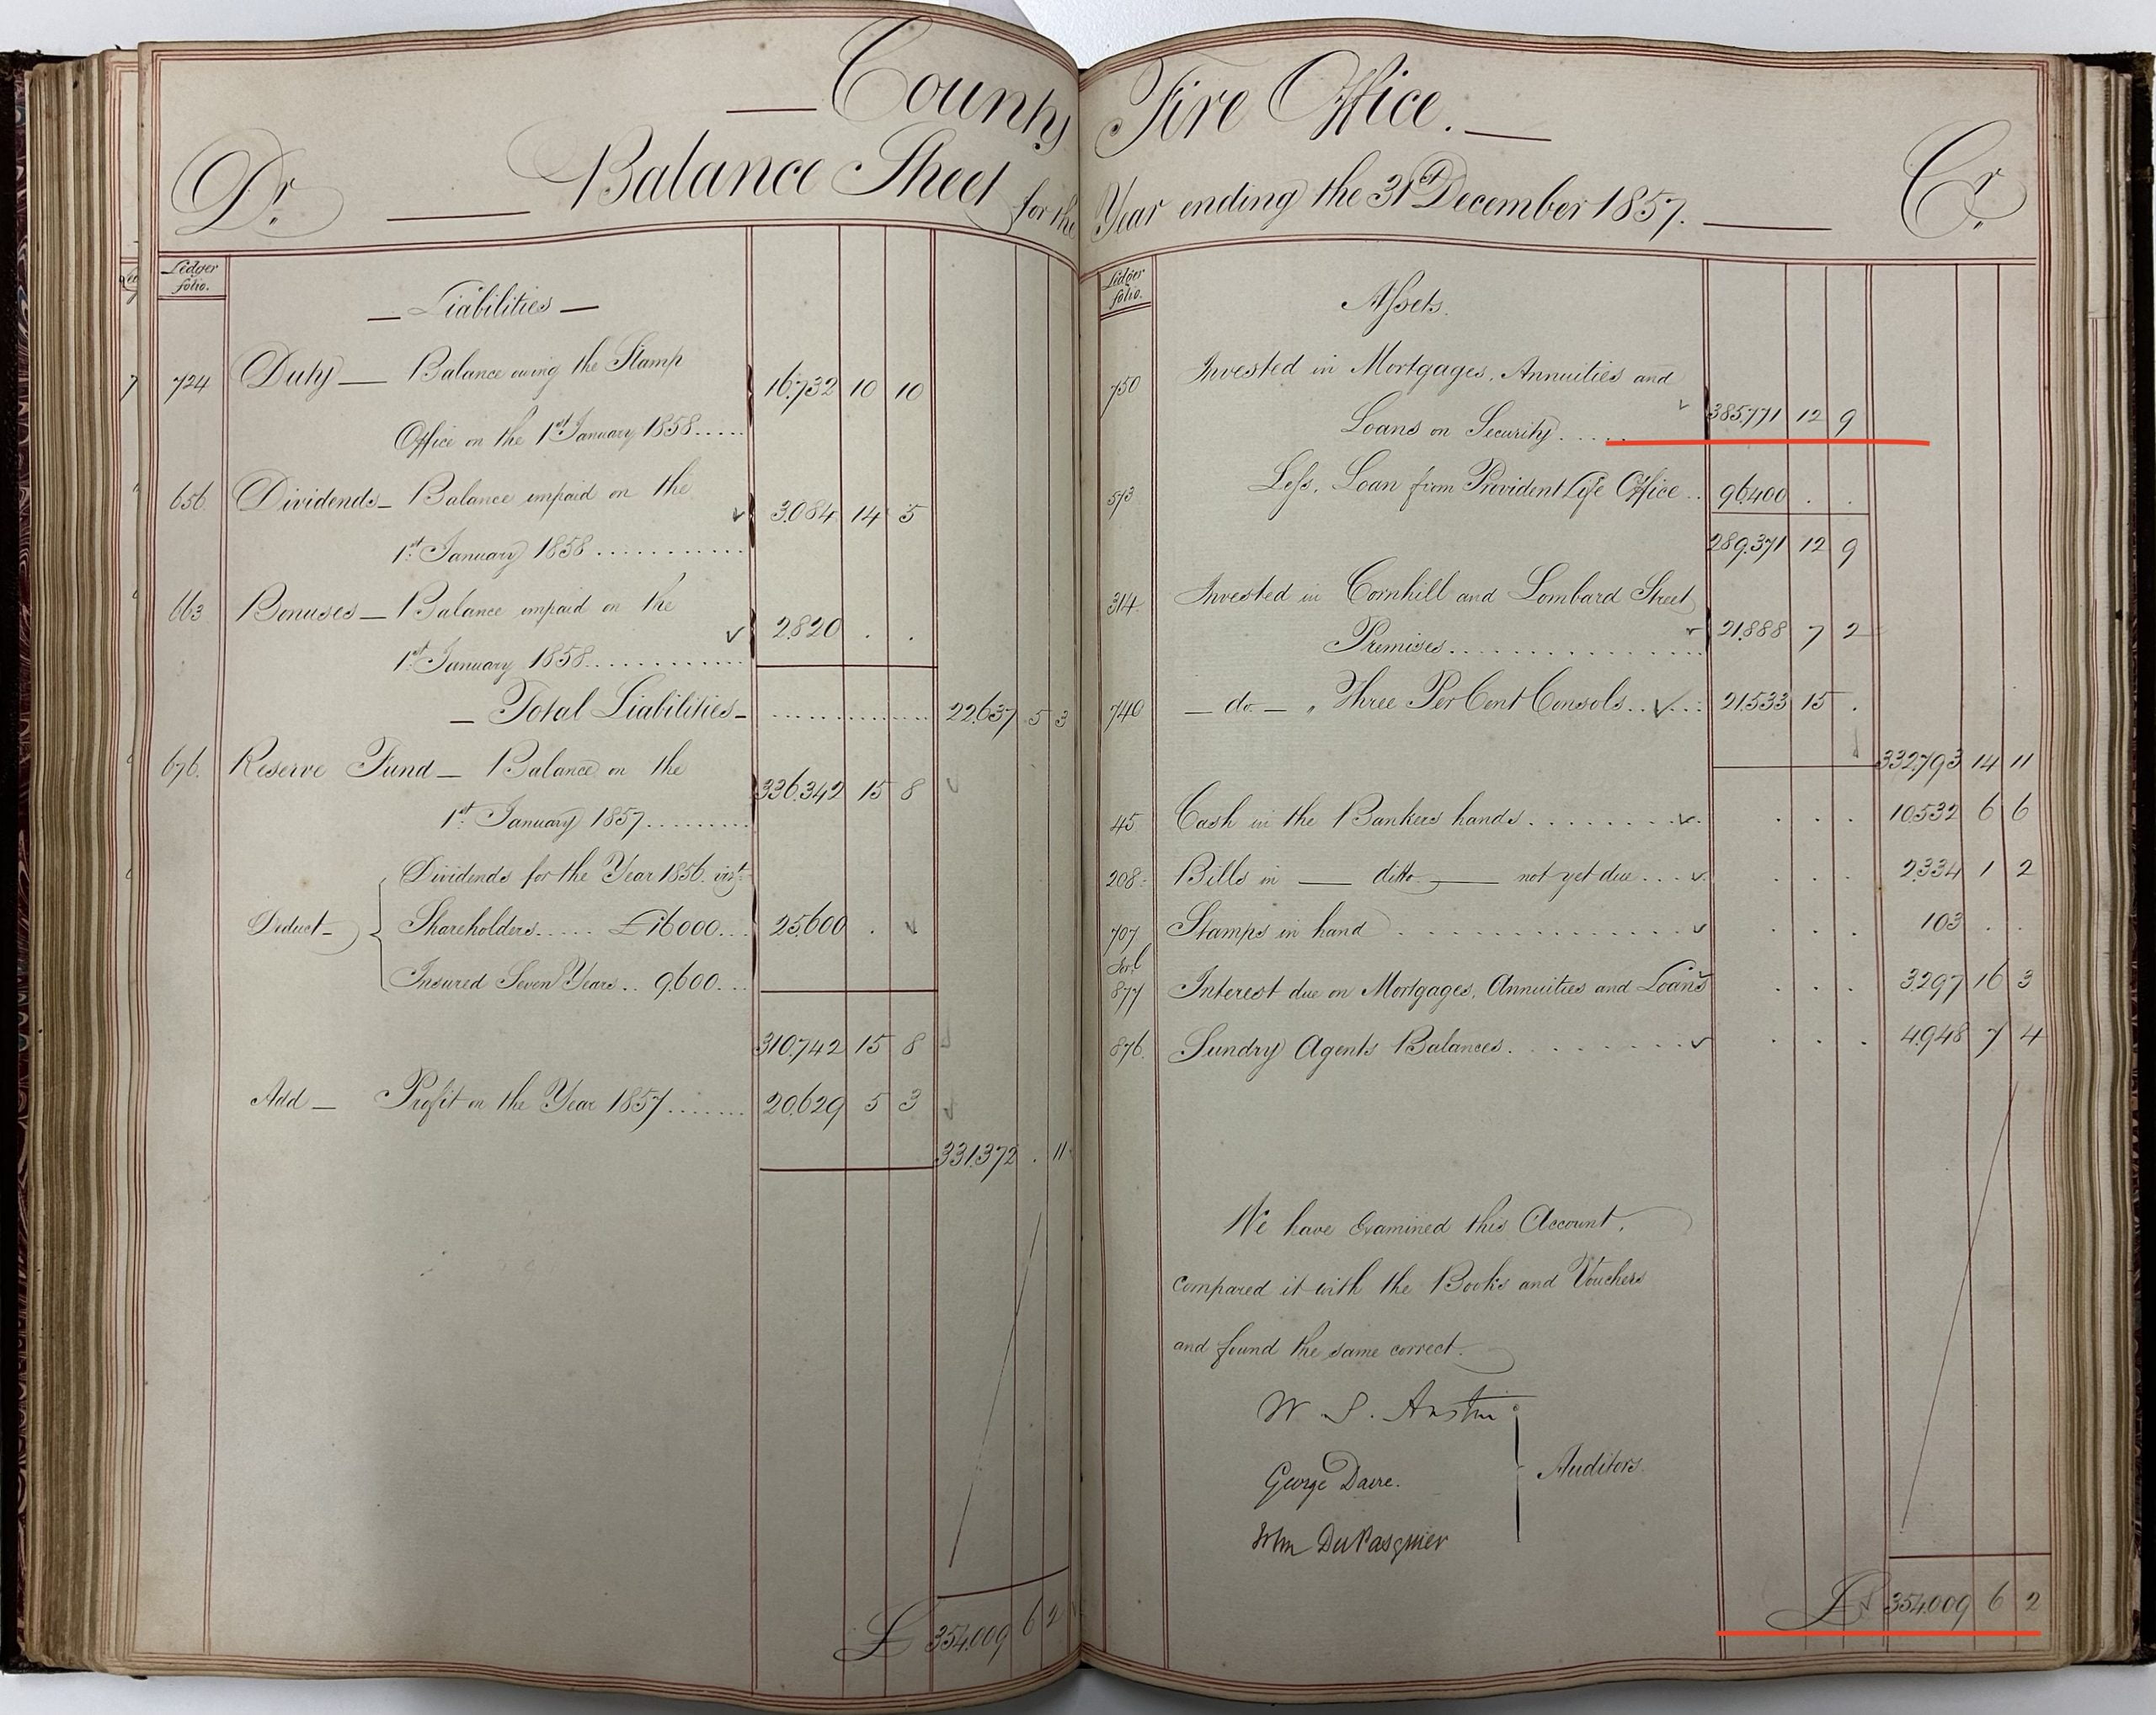 County Fire Office.
Dr. Balance Sheet for the Year ending the 31st December 1857. Cr.
Ledger folio.
Liabilities
724 Duty — Balance owing the Stamp
Office on the 1st January 1858..... 16,732 10 10
656 Dividends — Balance unpaid on the
1st January 1858............ 3,084 14 5
663 Bonuses — Balance unpaid on the
1st January 1858............ 2,820 . .
— Total Liabilities — ............... 22,637 5 3
676. Reserve Fund — Balance on the
1st January 1857......... 336,342 15 8
Dividends for the Year 1856. vizt.
Deduct — Shareholders..... £16000... 25,600 . .
Insured Seven Years.. 9,600...
310,742 15 8
Add — Profit on the Year 1857....... 20,629 5 3
331,372 . 11
£ 354,009 6 2
Ledger folio.
Assets.
750 Invested in Mortgages, Annuities and
Loans on Security..... 385,771 12 9
573 Less, Loan from Provident Life Office.. 96,400 . .
289,371 12 9
314 Invested in Cornhill and Lombard Street
Premises............... 21,888 7 2
740 — do — „ Three Per Cent Consols..... 21,533 15 .
332,793 14 11
45 Cash in the Bankers hands......... . . . 10,532 6 6
208 Bills in — ditto — not yet due.... . . . 2,334 1 2
707 Stamps in hand ............... . . . 103 . .
877 Interest due on Mortgages, Annuities and Loans . . . 3,297 16 3
876. Sundry Agents Balances......... . . . 4,948 7 4
We have Examined this Account,
compared it with the Books and Vouchers
and found the same correct.
W. S. Austin
George Dacre.
Auditors.
John Du Pasquier
£ 354,009 6 2